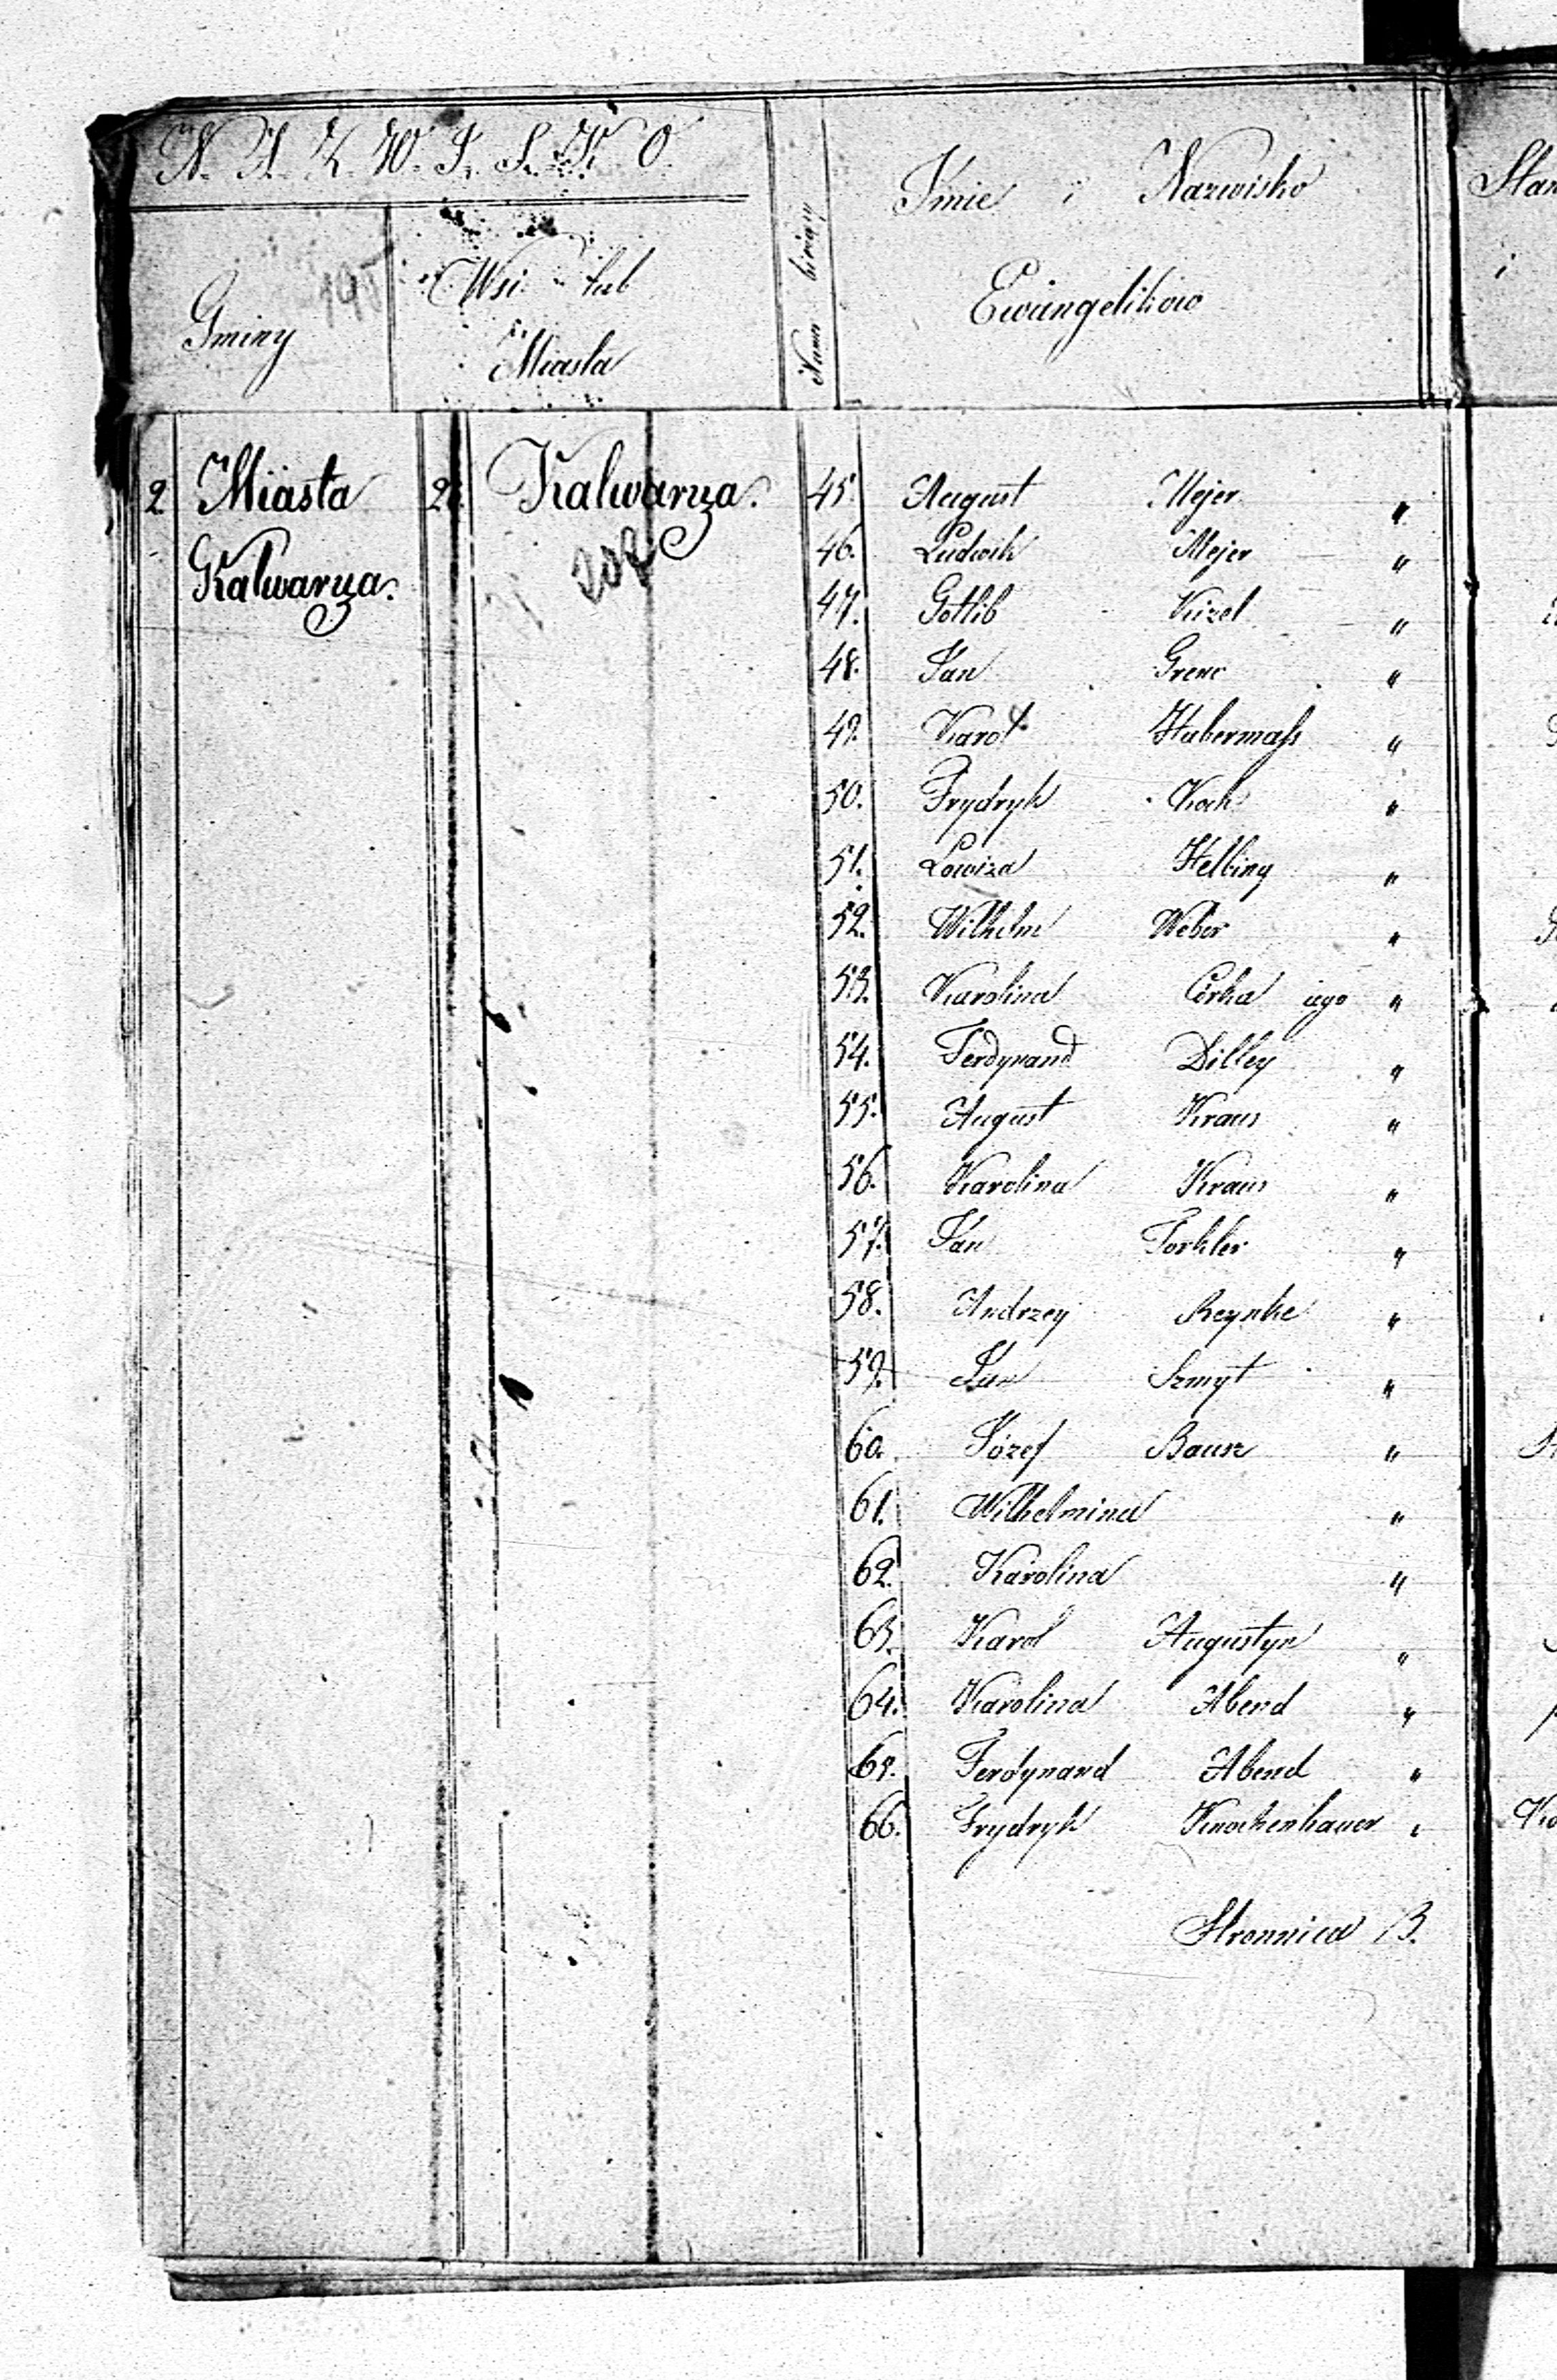 N. A. Z. W. I. S. K. O.
Gminy
Wsi lub
Miasta
Numer bieżący
Imie i Nazwisko
Ewangelikow
Stan
i
2 Miasta 2. Kalwarya. 45. August Mejer "
Kalwarya. 46. Ludwik Mejer "
47. Gotlib Kizel "
48. Jan Grenc "
49. Karol Habermass "
50. Frydryk Koch "
51. Lowiza Helbing "
52. Wilhelm Weber "
53. Karolina Córka iego "
54. Ferdynand Dilley "
55. August Kraus "
56. Karolina Kraus "
57. Jan Forkler "
58. Andrzey Reynke "
59. Jan Szmyt "
60. Józef Bausz "
61. Wilhelmina "
62. Karolina "
63. Karol Augustyn "
64. Karolina Abend "
65. Ferdynand Abend "
66. Frydryk Knochenhauer "
Stronnica B.